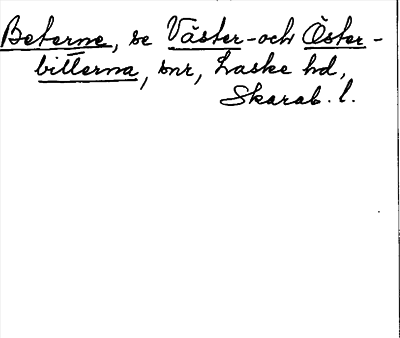 Beterne, se Väster- och Öster-
bitterna, snr, Laske hd,
Skarab. l.